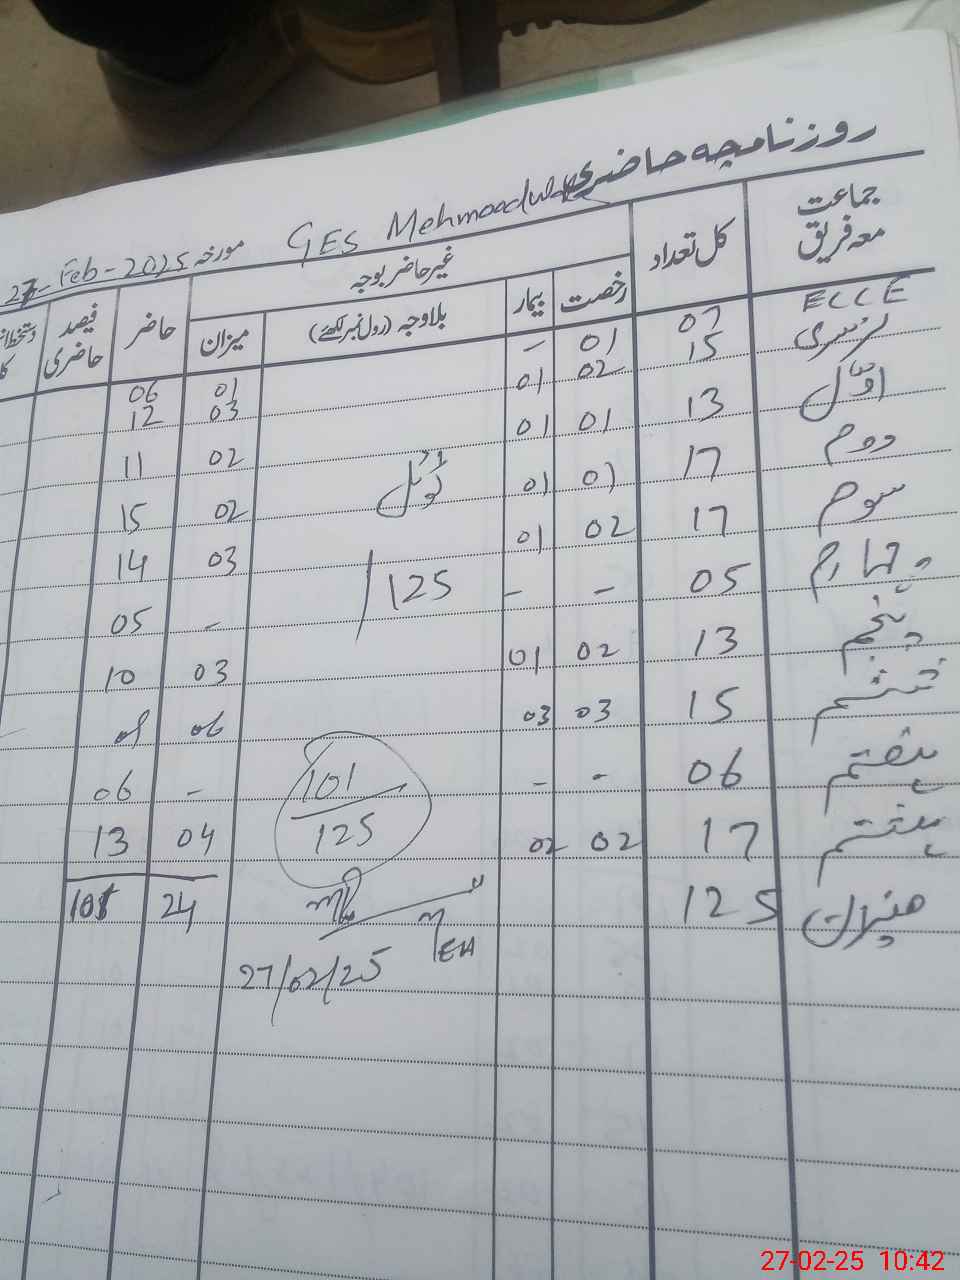 روزنامچہ حاضری
GES Mehmood مورخہ 27-Feb-2025
جماعت معہ فریق کل تعداد غیر حاضر بوجہ حاضر فیصد حاضری
رخصت بیمار بلاوجہ (رول نمبر لکھئے) میزان
ECCE 07 01 - 01 06
نرسری 15 02 01 03 12
اوّل 13 01 01 02 11
دوم 17 01 01 02 15
سوم 17 02 01 03 14
چہارم 05 - - - 05
پنجم 13 02 01 03 10
ششم 15 03 03 06 09
ہفتم 06 - - - 06
ہشتم 17 02 02 04 13
میزان 125 24 101
ٹوٹل
125
101
125
27/02/25
27-02-25 10:42